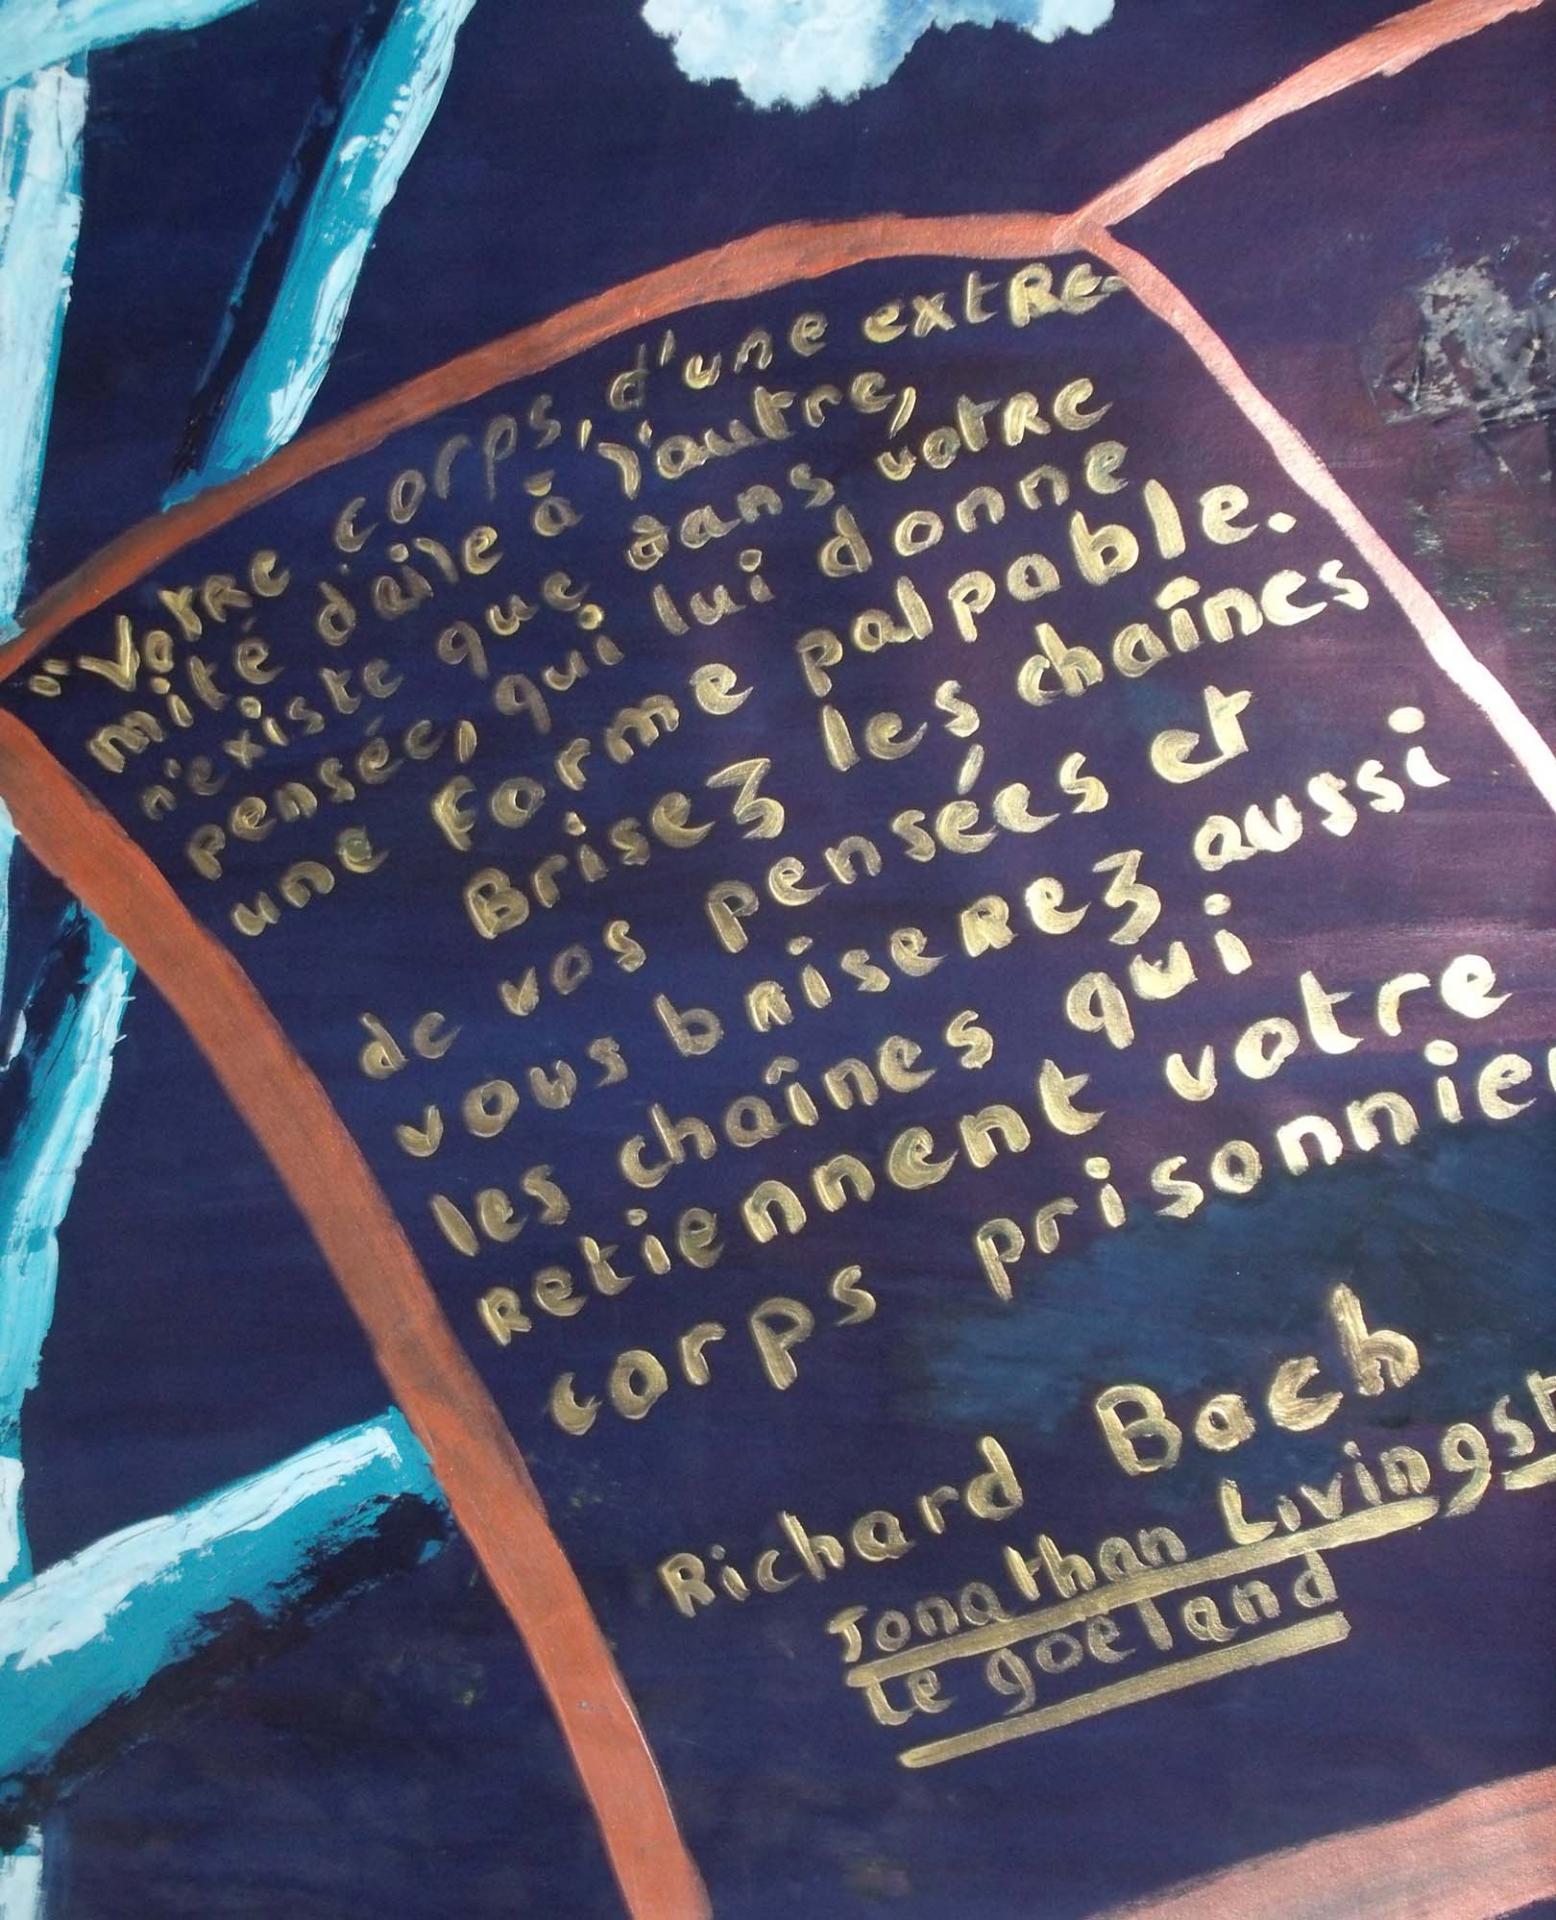 "Votre corps, d'une extRE-
mité d'aile à l'autre,
n'existe que dans votRE
pensée, qui lui donne
une forme palpable.
Brisez les chaînes
de vos pensées et
vous briserez aussi
les chaînes qui
Retiennent votre
corps prisonnie
Richard Bach
Jonathan Livingst
Le goéland